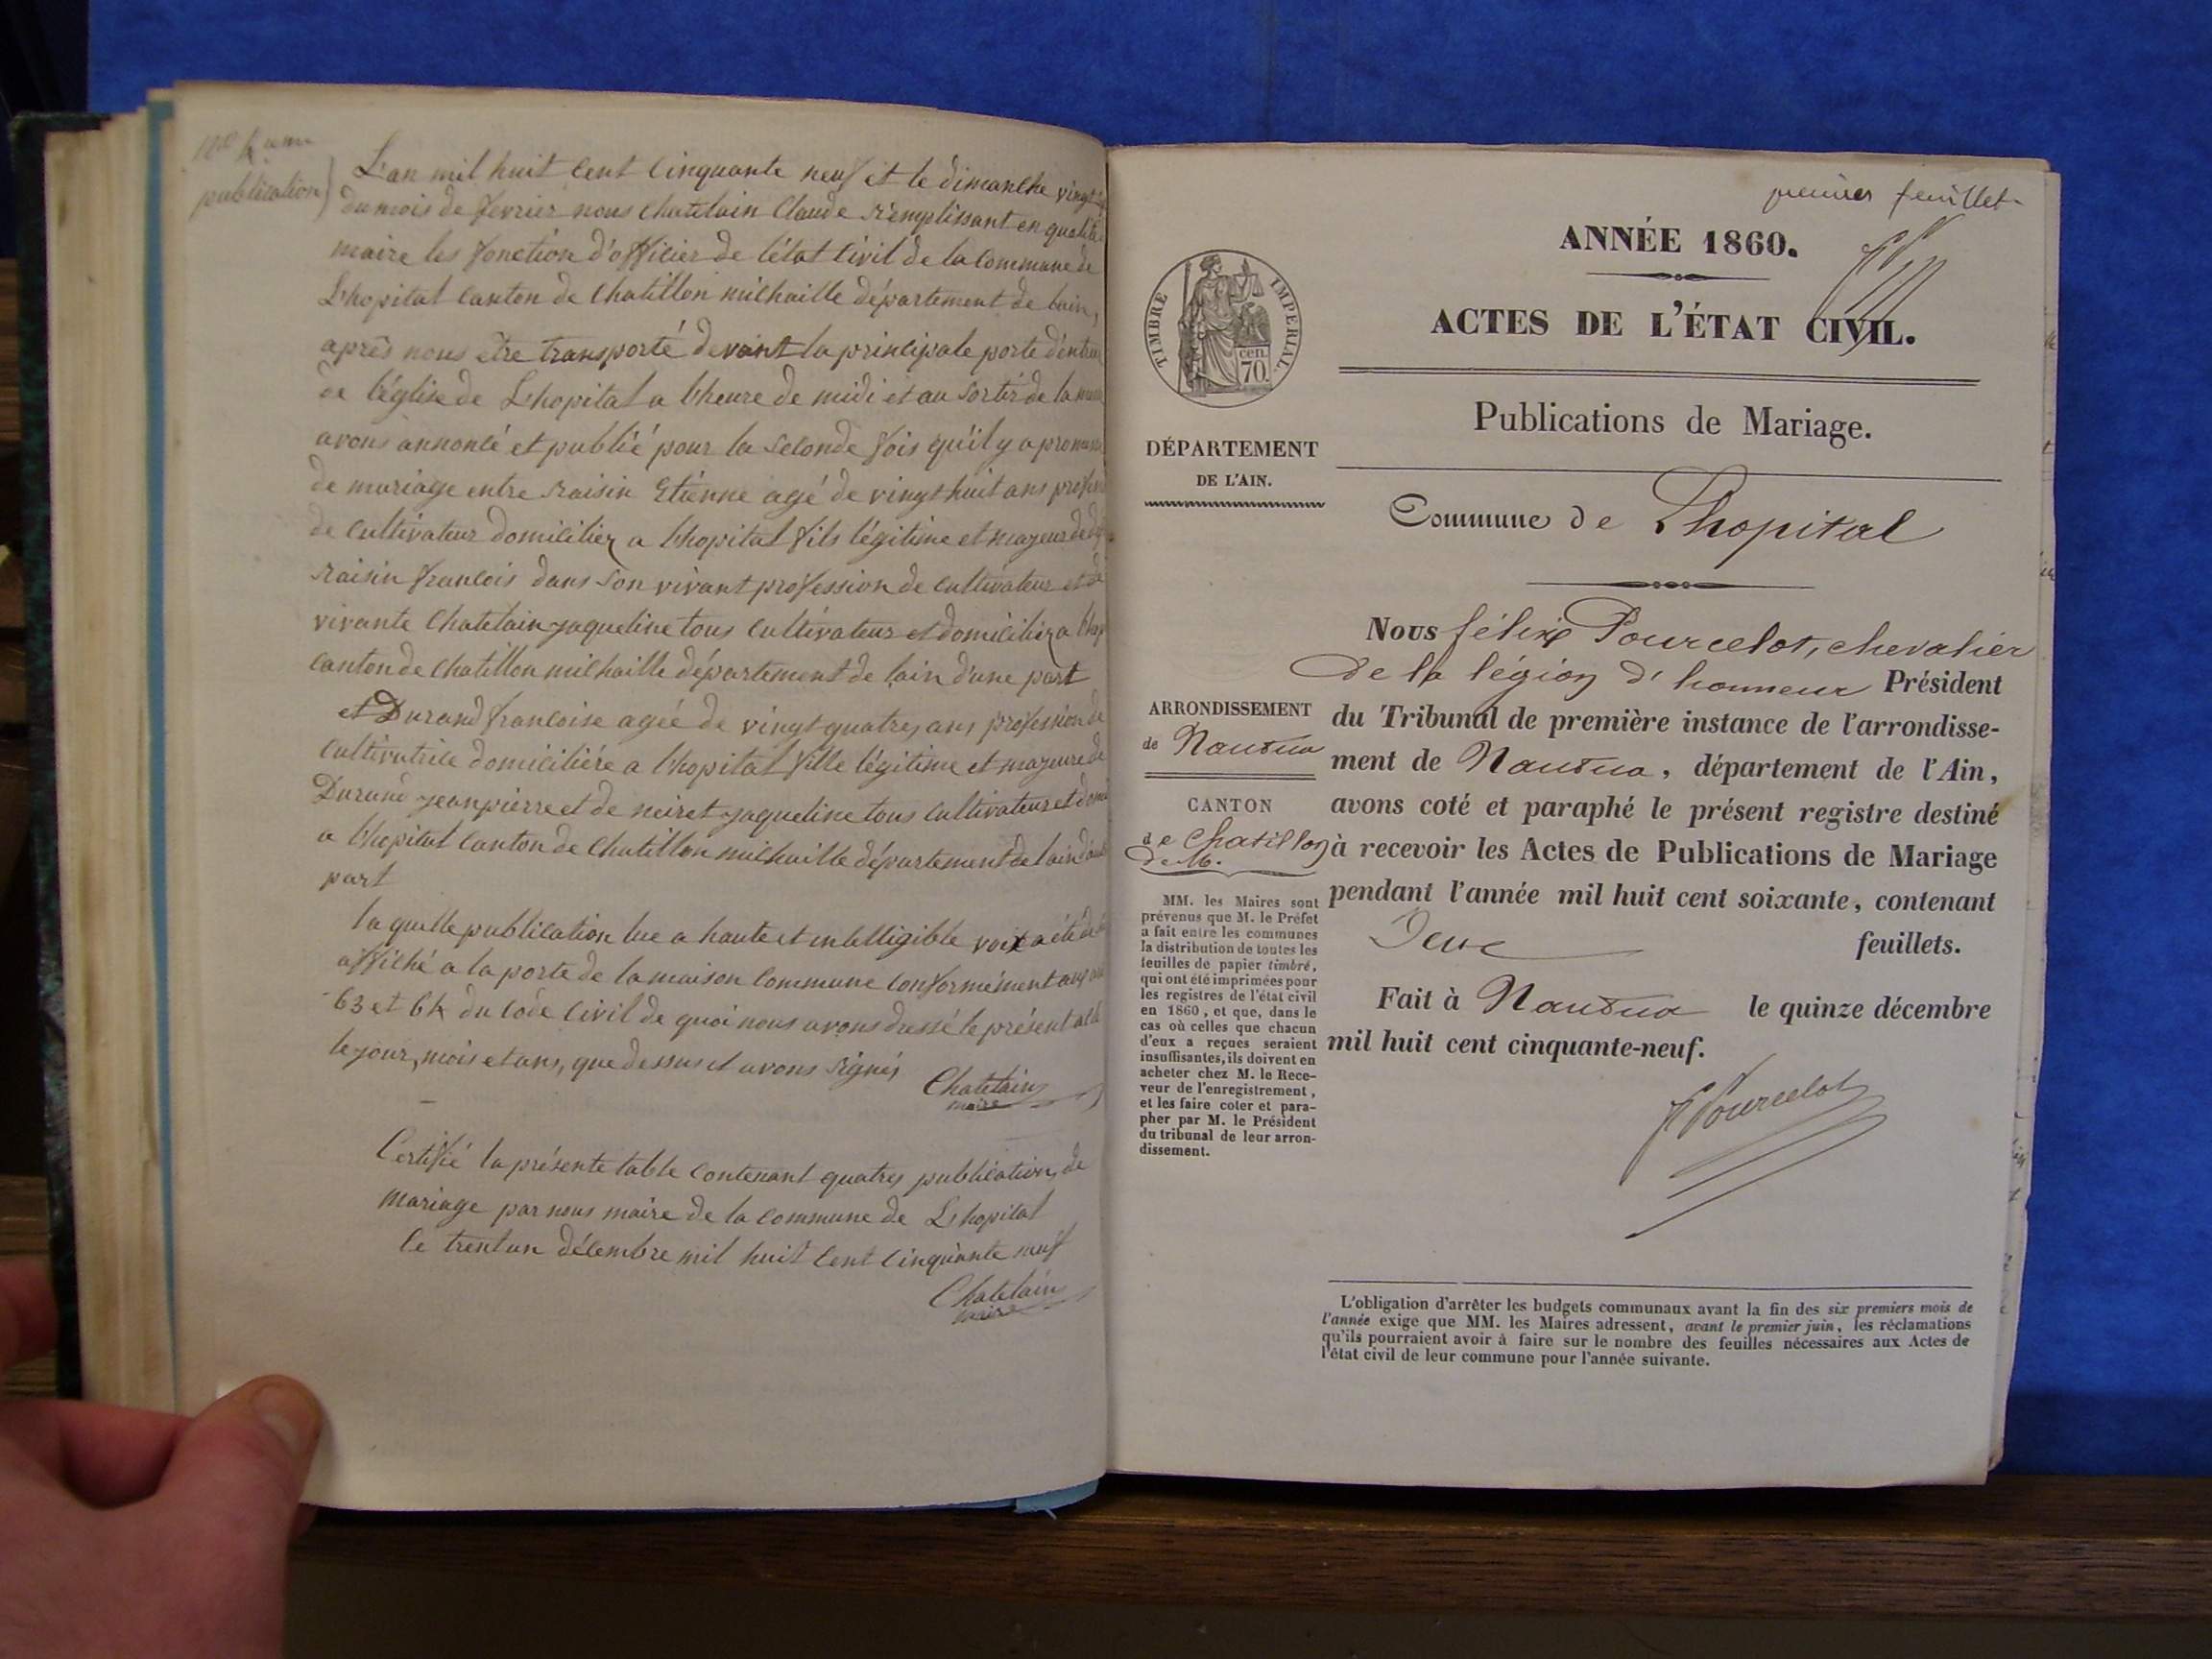 publication
L'an mil huit cent cinquante neuf et le dimanche
du mois de fevrier nous Chatelain Claude remplissant en qualité
maire les fonction d'officier de l'état civil de la commune de
L'hopital canton de Chatillon michaille département de lain,
après nous être transporté devant la principale porte d'entrée
de l'église de L'hopital a lheure de midi et au sortir de la messe
avons annoncé et publié pour la seconde fois qu'il y a promesse
de mariage entre Raisin Etienne agé de vingt huit ans profession
de cultivateur domicilier a lhopital fils légitime et mageur de
Raisin francois dans son vivant profession de cultivateur et de
vivante Chatelain jaqueline tous cultivateur et domicilier a lhop
canton de Chatillon michaille département de lain d'une part
et Durand francoise agée de vingt quatres ans profession de
cultivatrice domicilière a lhopital fille légitime et mageure de
Durand jean pierre et de neiret jaqueline tous cultivateur et domi
a lhopital canton de Chatillon michaille département de lain
part
la quelle publication lue a haute et intelligible voix a été de
affiché a la porte de la maison commune conformément aux
63 et 64 du code civil de quoi nous avons dressé le présent acte
le jour, mois et ans, que dessus et avons signés
Chatelain
maire
Certifié la présente table contenant quatres publication de
mariage par nous maire de la commune de L'hopital
le trentun décembre mil huit cent cinquante neuf
Chatelain
maire
premier feuillet
ANNÉE 1860.
ACTES DE L'ÉTAT CIVIL.
TIMBRE IMPERIAL.
cen.
70.
Publications de Mariage.
DÉPARTEMENT
DE L'AIN.
Commune de Lhopital
Nous félix Pourcelot, chevalier
de la légion d'honneur Président
ARRONDISSEMENT
de Nantua
du Tribunal de première instance de l'arrondisse-
ment de Nantua, département de l'Ain,
CANTON
de Chatillon
de M.
avons coté et paraphé le présent registre destiné
à recevoir les Actes de Publications de Mariage
pendant l'année mil huit cent soixante, contenant
Deux feuillets.
Fait à Nantua le quinze décembre
mil huit cent cinquante-neuf.
F Pourcelot
MM. les Maires sont
prévenus que M. le Préfet
a fait entre les communes
la distribution de toutes les
feuilles de papier timbré,
qui ont été imprimées pour
les registres de l'état civil
en 1860, et que, dans le
cas où celles que chacun
d'eux a reçues seraient
insuffisantes, ils doivent en
acheter chez M. le Rece-
veur de l'enregistrement,
et les faire coter et para-
pher par M. le Président
du tribunal de leur arron-
dissement.
L'obligation d'arrêter les budgets communaux avant la fin des six premiers mois de
l'année exige que MM. les Maires adressent, avant le premier juin, les réclamations
qu'ils pourraient avoir à faire sur le nombre des feuilles nécessaires aux Actes de
l'état civil de leur commune pour l'année suivante.